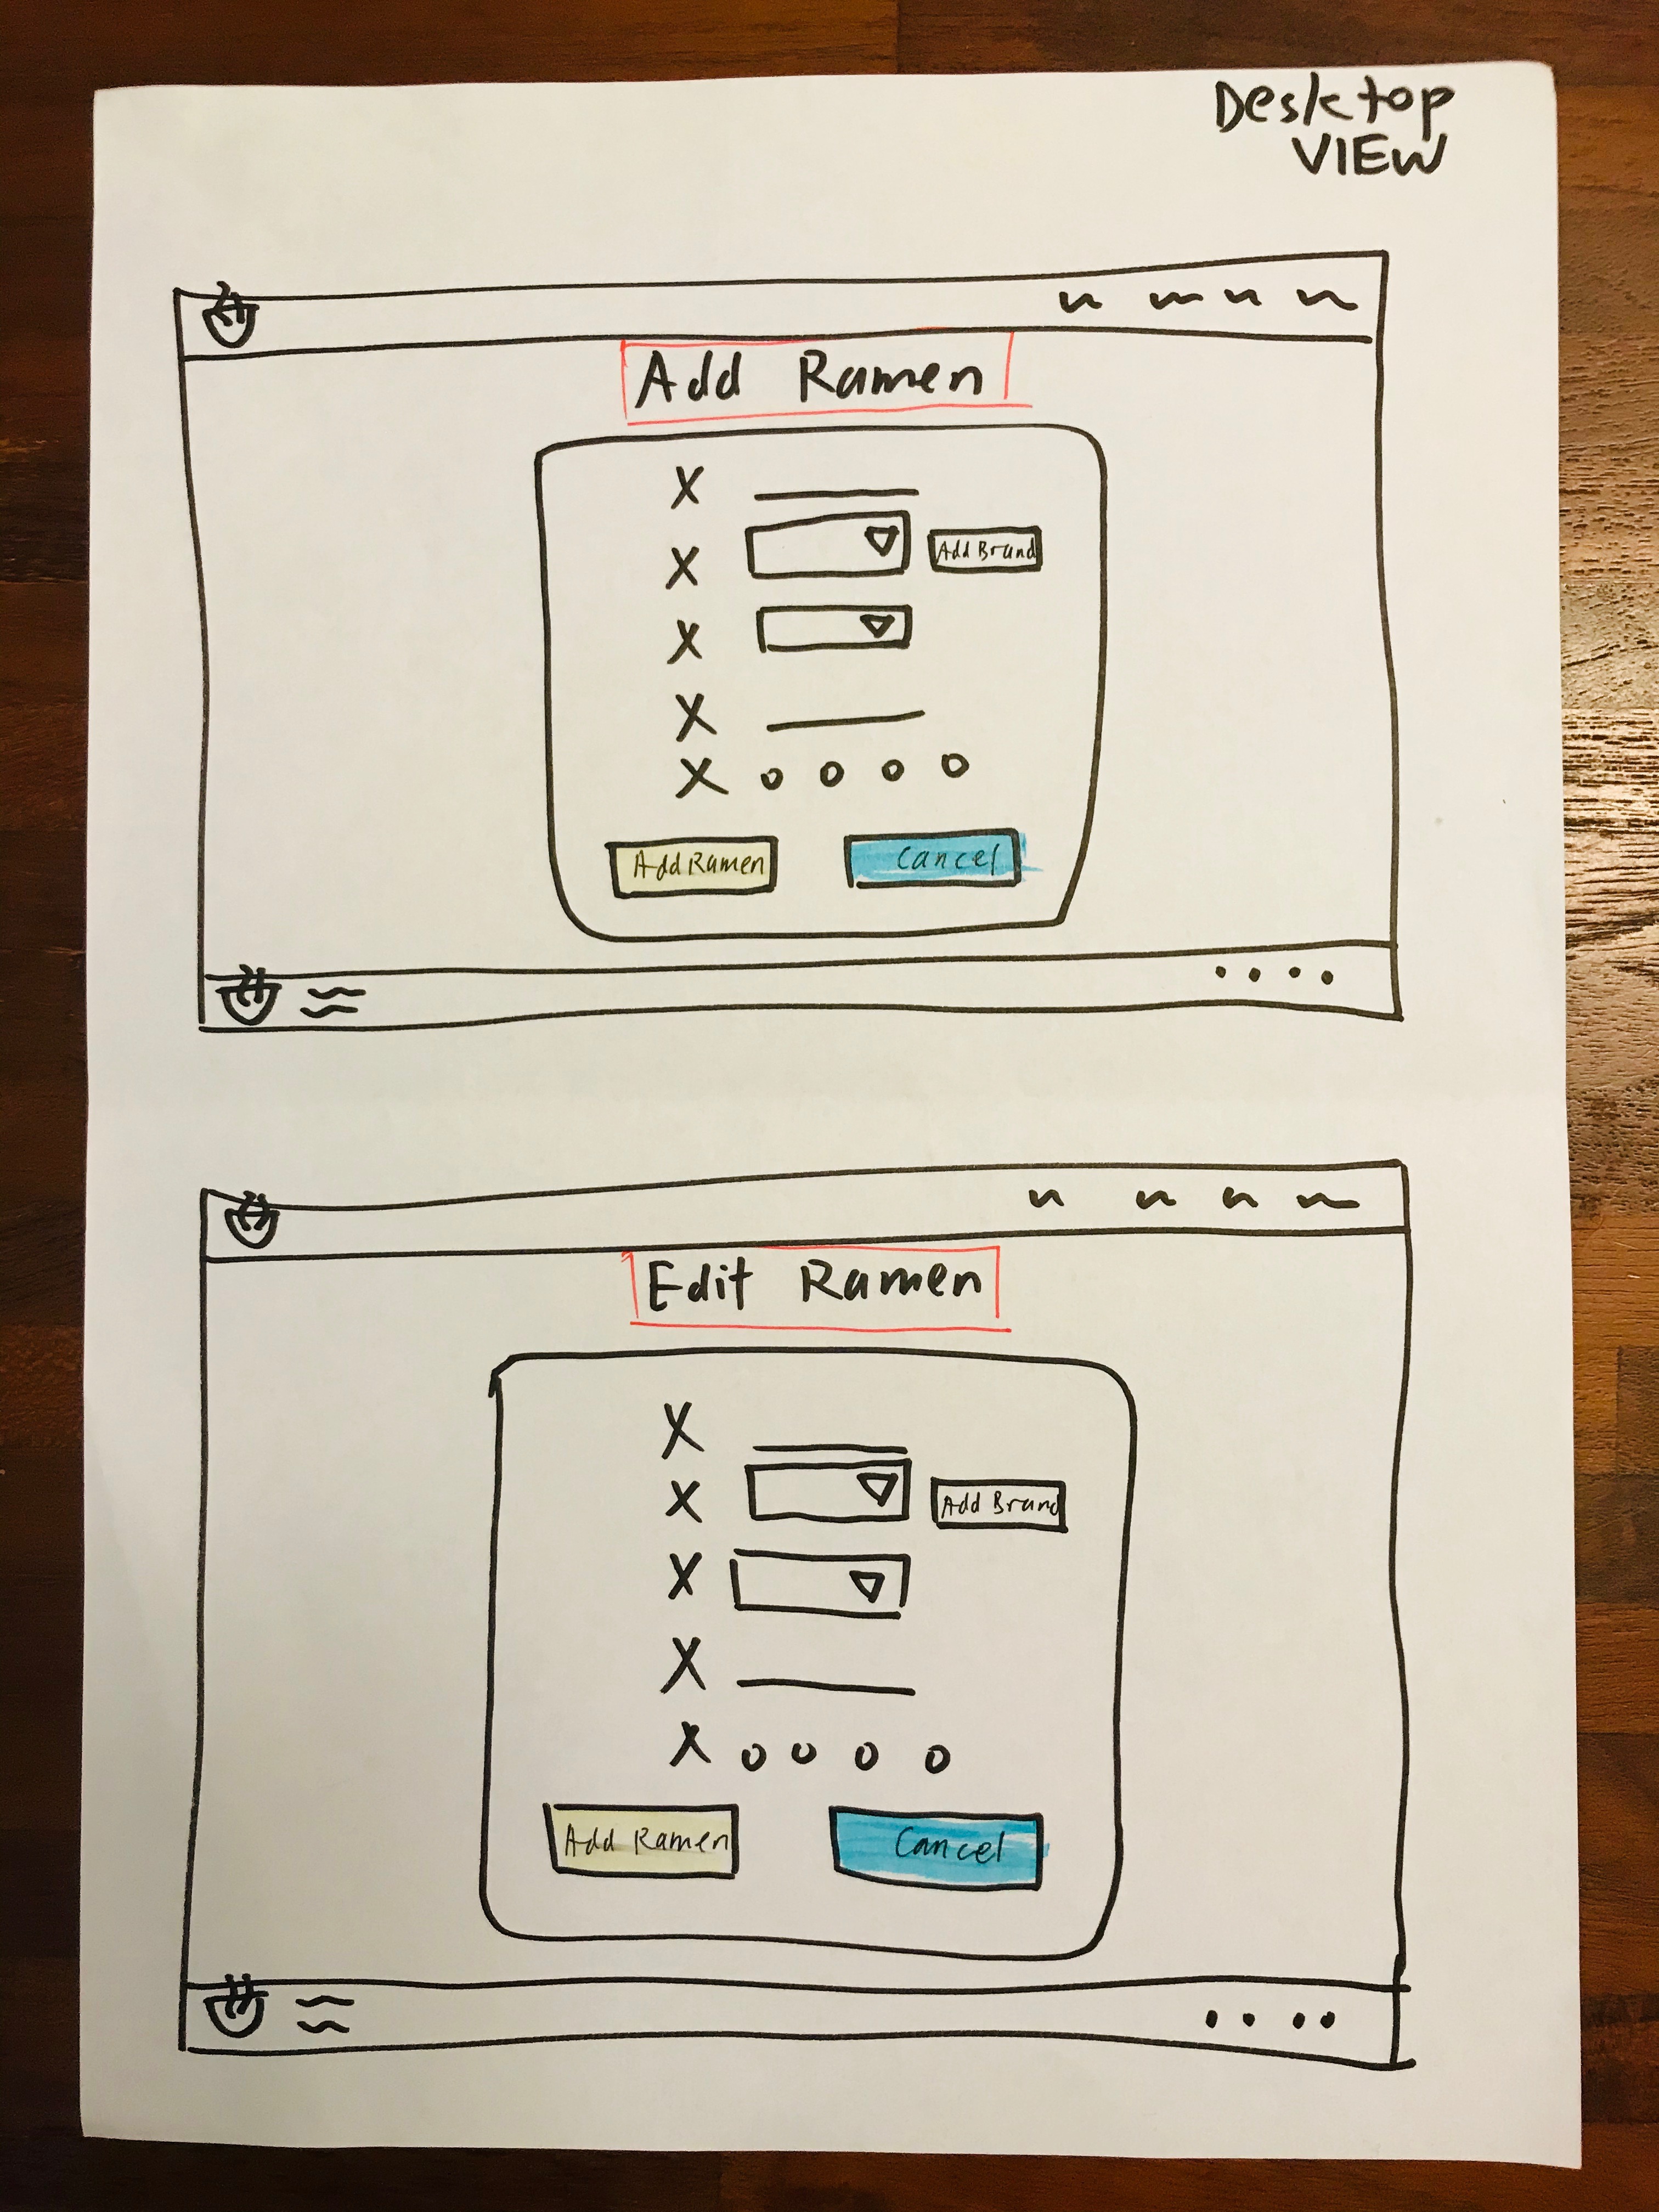 Desktop
VIEW
Add Ramen
X
X Add Brand
X
X
X
Add Ramen Cancel
Edit Ramen
X
X Add Brand
X
X
X
Add Ramen Cancel